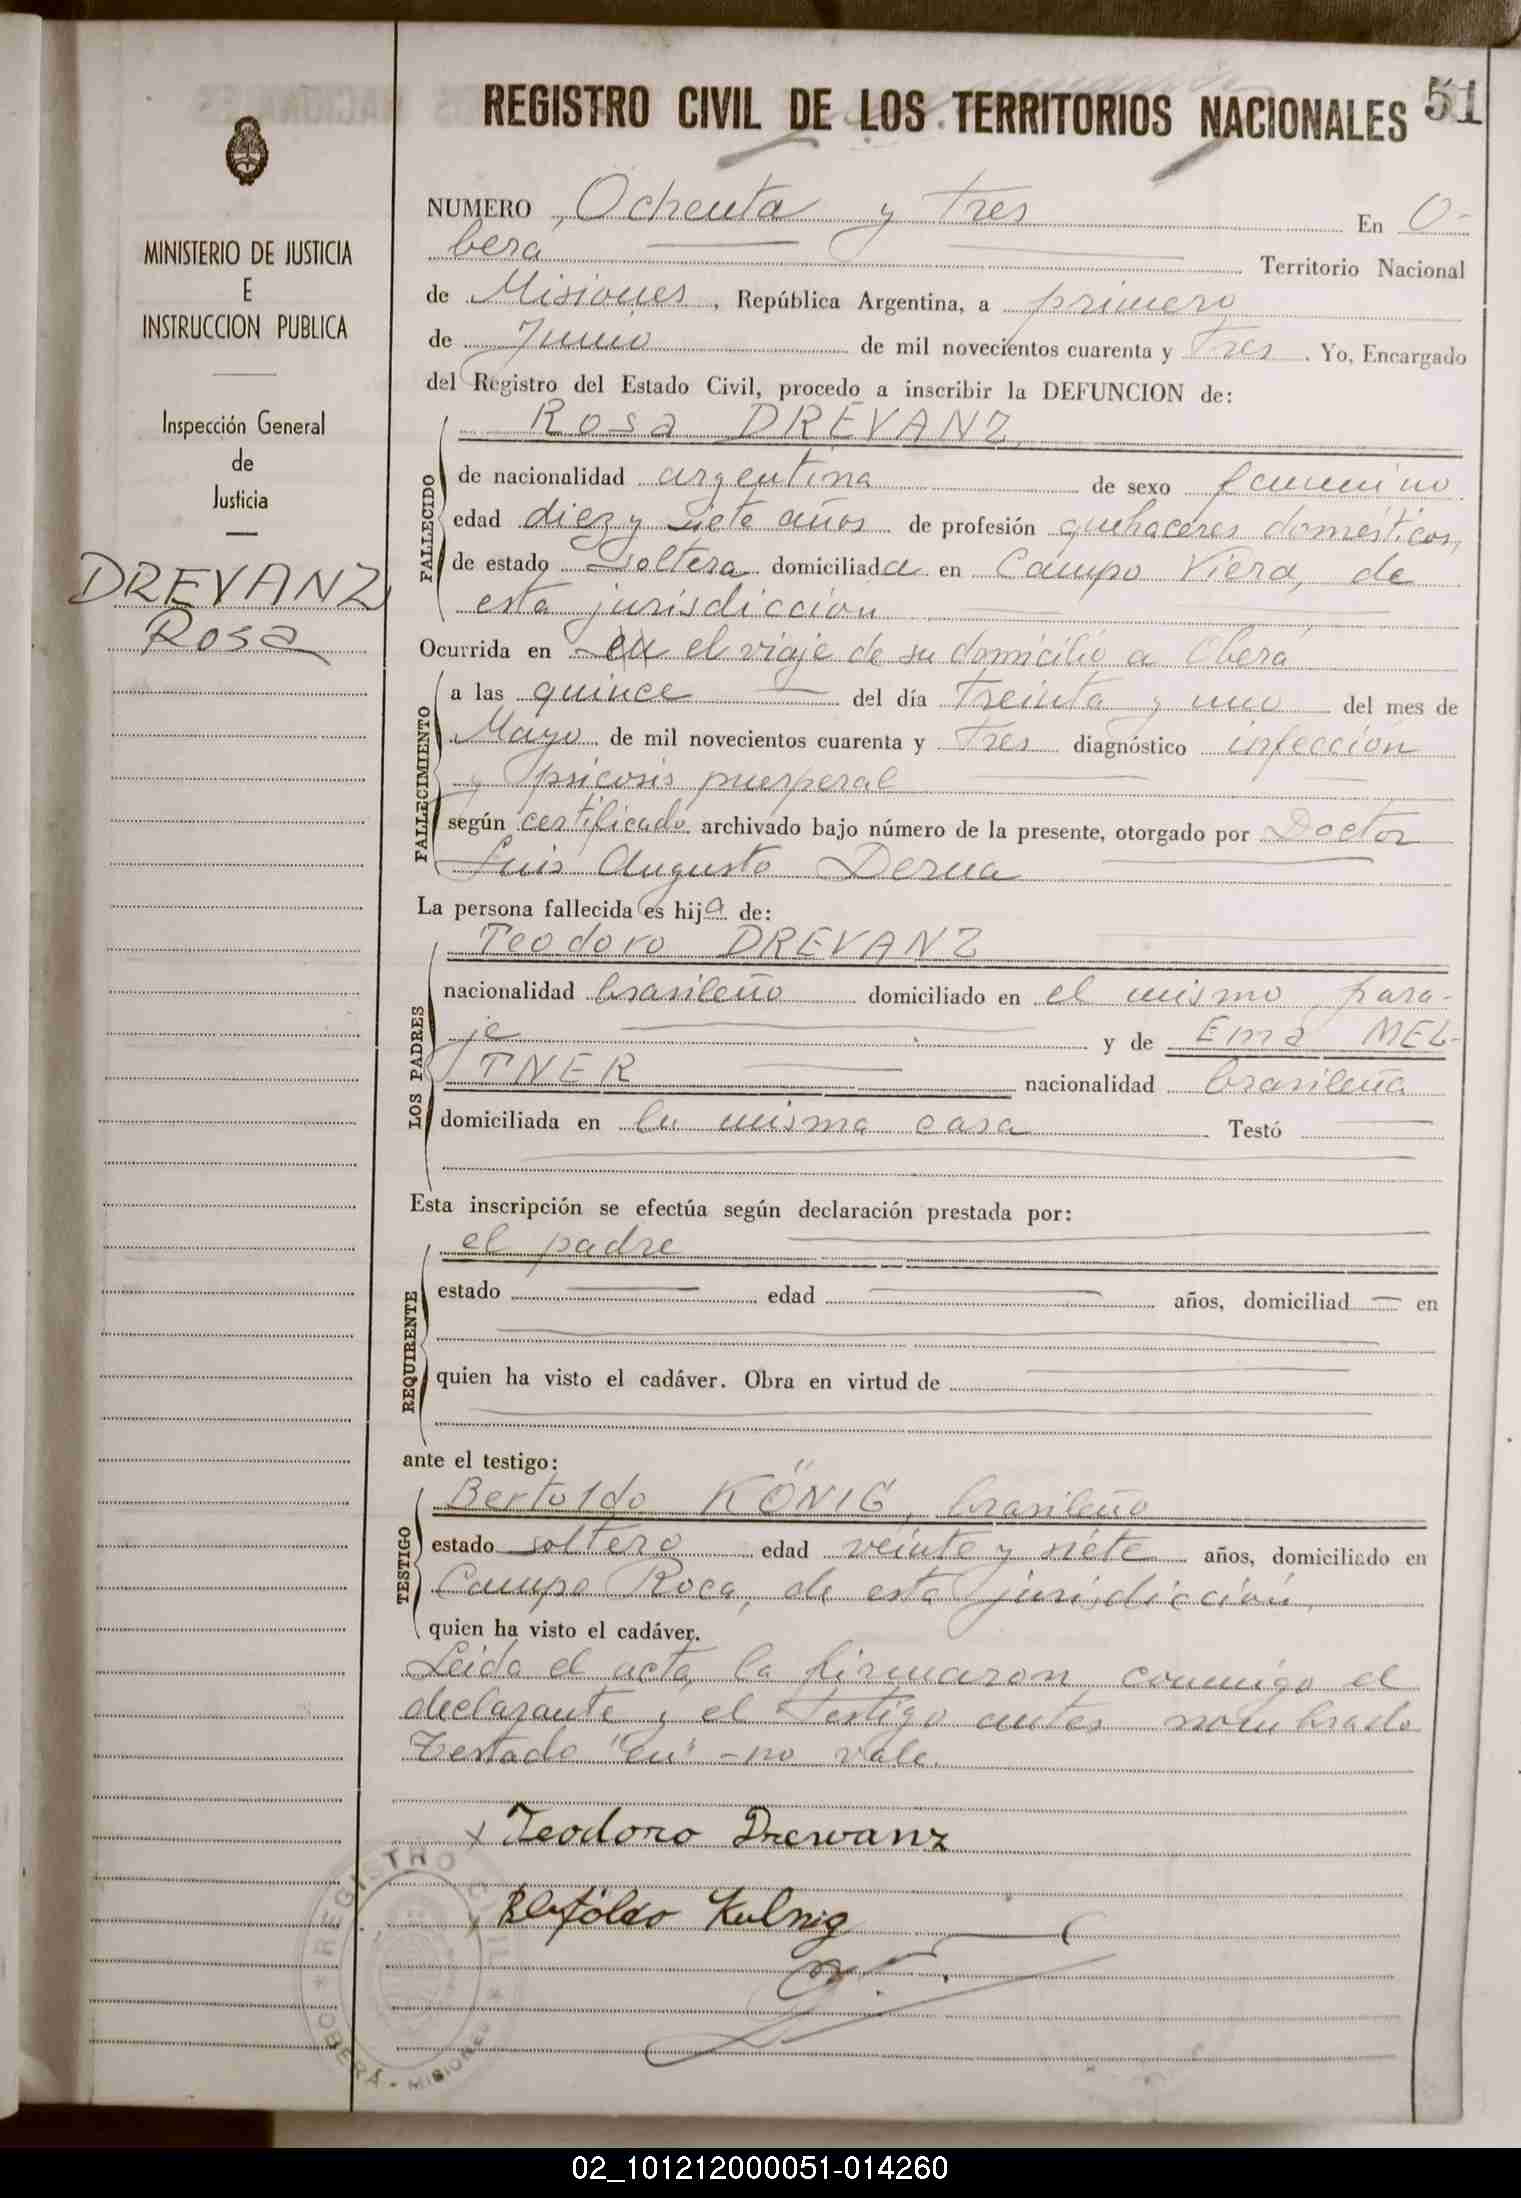 51
REGISTRO CIVIL DE LOS TERRITORIOS NACIONALES
MINISTERIO DE JUSTICIA
E
INSTRUCCION PUBLICA
Inspección General
de
Justicia
DREVANZ
Rosa
NUMERO Ochenta y tres En O-
bera Territorio Nacional
de Misiones, República Argentina, a primero
de Junio de mil novecientos cuarenta y tres. Yo, Encargado
del Registro del Estado Civil, procedo a inscribir la DEFUNCION de:
Rosa DREVANZ
FALLECIDO
de nacionalidad argentina de sexo femenino
edad diez y siete años de profesión quehaceres domésticos,
de estado soltera domiciliada en Campo Viera, de
esta jurisdicción
Ocurrida en en el viaje de su domicilio a Oberá
FALLECIMIENTO
a las quince del día treinta y uno del mes de
Mayo de mil novecientos cuarenta y tres diagnóstico infección
y psicosis puerperal
según certificado archivado bajo número de la presente, otorgado por Doctor
Luis Augusto Derna
La persona fallecida es hija de:
Teodoro DREVANZ
LOS PADRES
nacionalidad brasileño domiciliado en el mismo para-
je y de Ema MEL-
TNER nacionalidad brasileña
domiciliada en la misma casa Testó
Esta inscripción se efectúa según declaración prestada por:
el padre
REQUIRENTE
estado edad años, domiciliad en
quien ha visto el cadáver. Obra en virtud de
ante el testigo:
Bertoldo KÖNIG, brasileño
TESTIGO
estado soltero edad veinte y siete años, domiciliado en
Campo Roca, de esta jurisdicción
quien ha visto el cadáver.
Leida el acta, la firmaron conmigo el
declarante y el testigo antes nombrado
Testado "en" - no vale.
x Teodoro Drewanz
REGISTRO CIVIL
OBERÁ - MISIONES
02_101212000051-014260